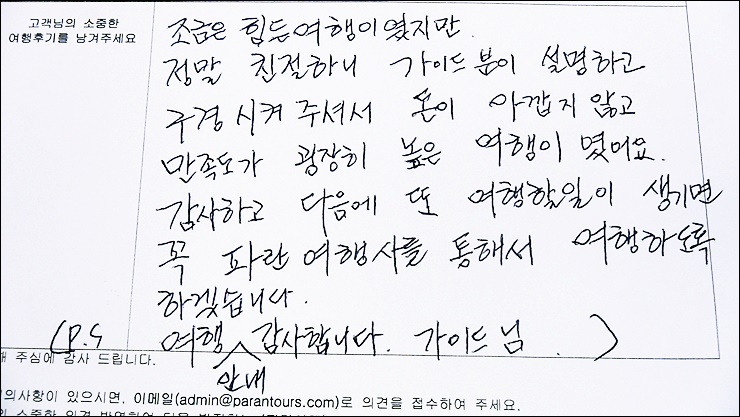 고객님의 소중한
여행후기를 남겨주세요
조금은 힘든여행이였지만
정말 친절하니 가이드분이 설명하고
구경시켜주셔서 돈이 아깝지않고
만족도가 굉장히 높은 여행이였어요.
감사하고 다음에 또 여행할일이 생기면
꼭 파란여행사를 통해서 여행하도록
하겠습니다.
(P.S 여행 안내 감사합니다. 가이드님.)
주심에 감사 드립니다.
의사항이 있으시면, 이메일(admin@parantours.com)로 의견을 접수하여 주세요.